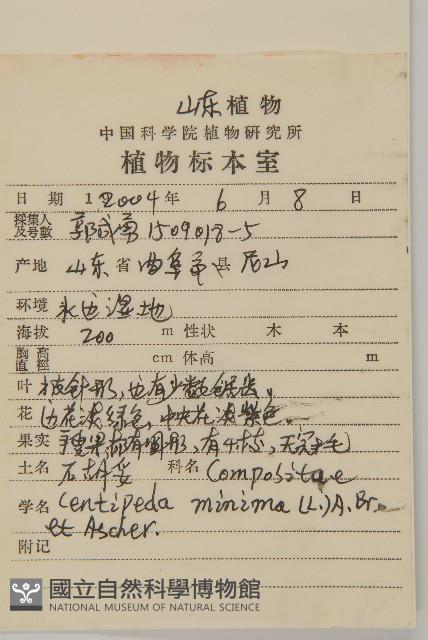 山东植物
中国科学院植物研究所
植物标本室
日期 2004年 6月 8日
採集人及号數 郭成勇 1509018-5
产地 山东省曲阜市县尼山
环境 水边湿地
海拔 200 m 性状 木 本
胸高直徑 cm 体高 m
叶 披针形,边有少数锯齿,
花 边花淡绿色,中央花淡紫色.
果实 瘦果椭圆形,有4棱,无冠毛
土名 石胡荽 科名 Compositae
学名 Centipeda minima (L.) A. Br.
et Ascher.
附记
國立自然科學博物館
NATIONAL MUSEUM OF NATURAL SCIENCE